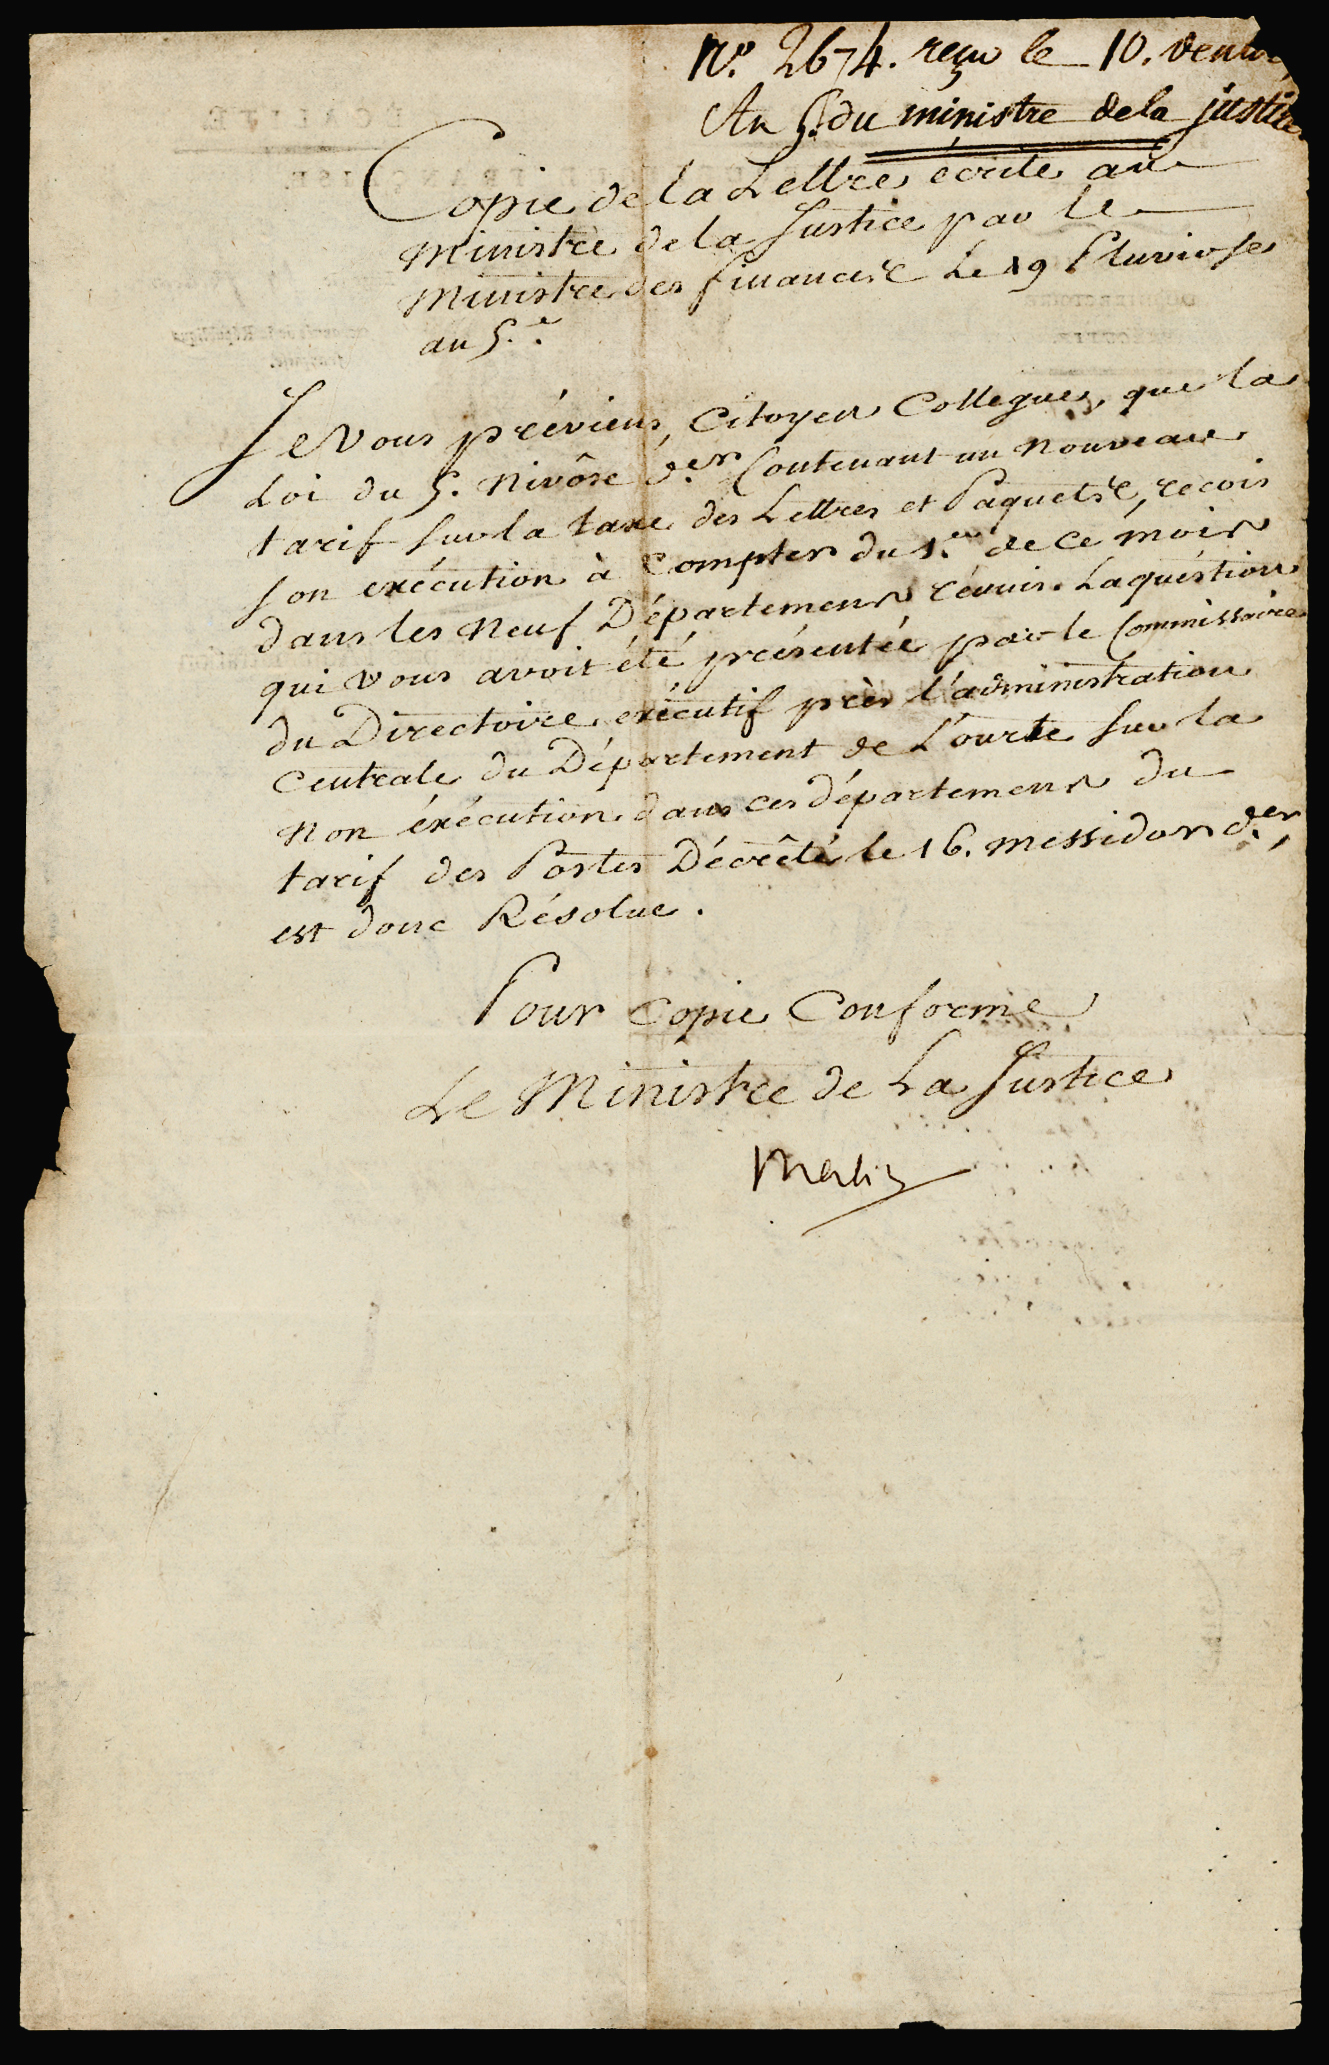 N.º 2674. reçu le 10. vento
An 5. du ministre de la justice
Copie de la Lettre écrite au
Ministre de la Justice par le
Ministre des finances Le 19 Pluviose
an 5.e
Je vous préviens, Citoyen Collegue, que la
Loi du 5. Nivôse d.er Contenant un nouveau
tarif sur la taxe des Lettres et Paquets, recois
son exécution à Compter du 1.er de ce mois
dans les Neuf Départemens réunis. La question
qui vous avoit été présentée par le Commissaire
du Directoire exécutif près l'administration
Centrale du Département de L'ourte sur la
Non éxécution dans ces départemens du
tarif des Postes Décrêté le 16. messidor d.er,
est donc Résolue.
Pour Copie Conforme
Le Ministre de La Justice
Merlin